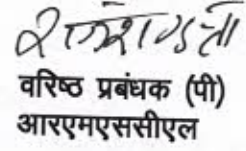 वरिष्ठ प्रबंधक (पी)
आरएमएससीएल